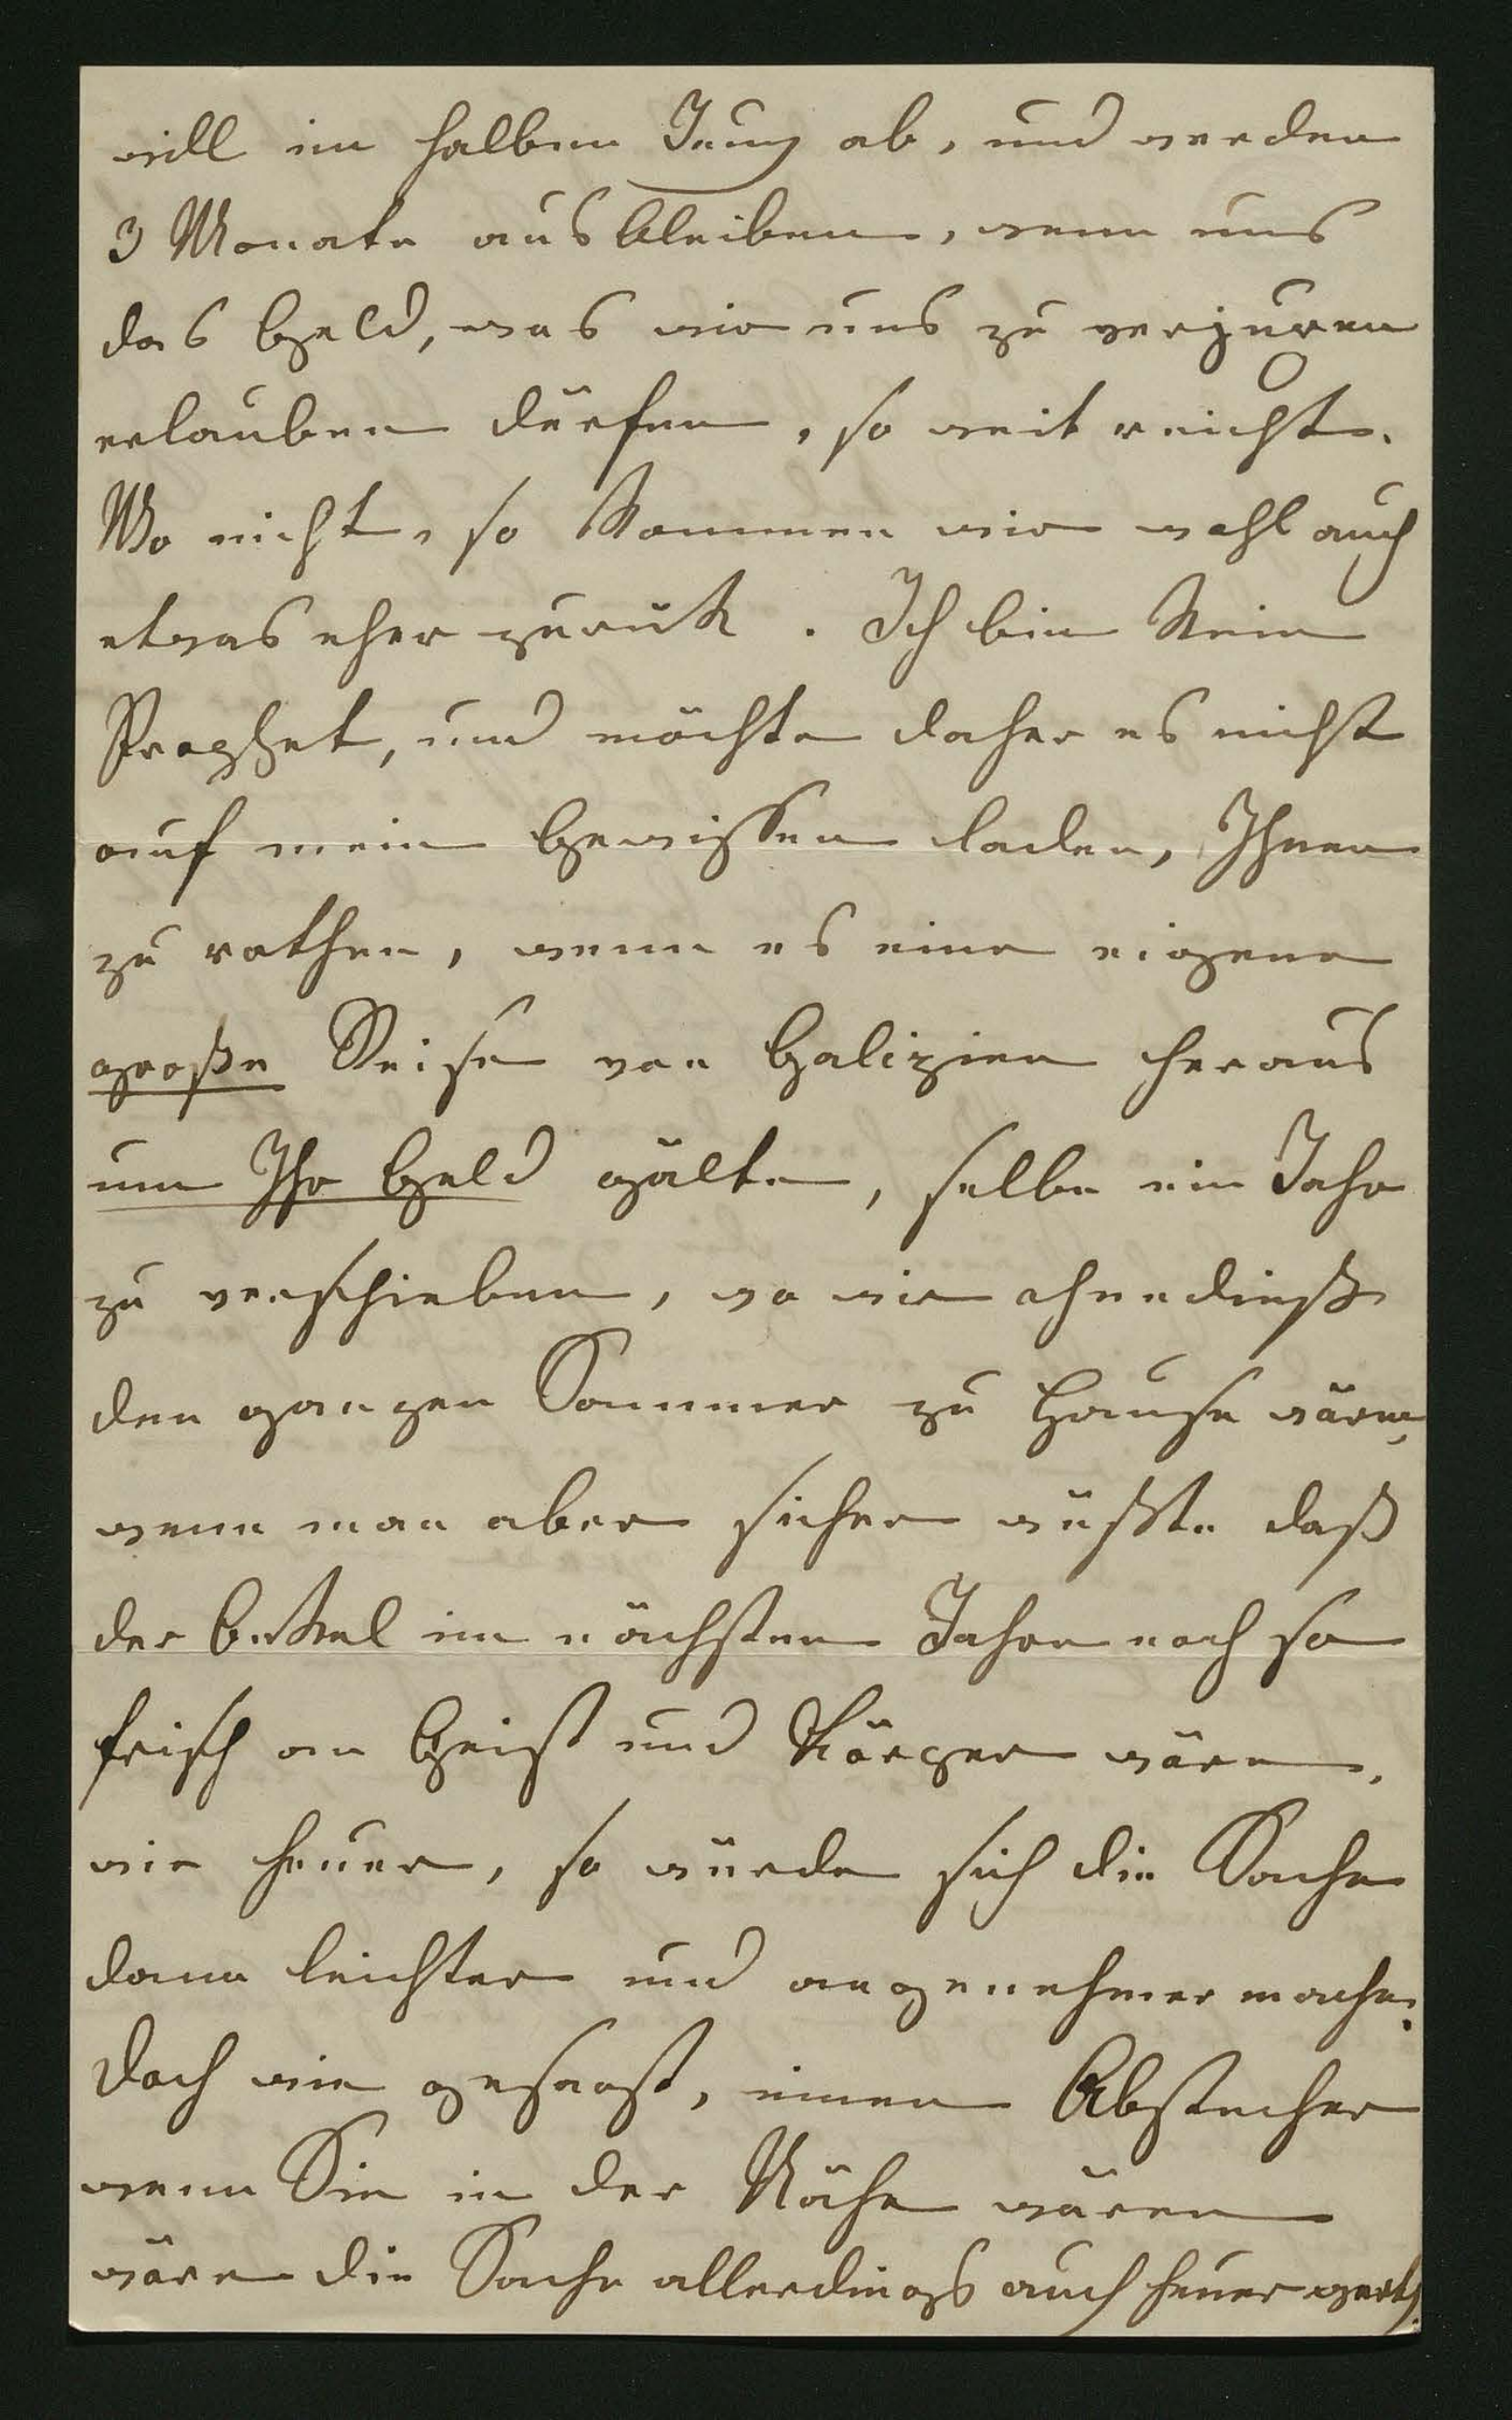 will im halben Juny ab, und werden
3 Monate ausbleiben, wenn uns
das Geld, was wir uns zu verjuren
erlauben dürfen, so weit reicht.
Wo nicht, so kommen wir wohl auch
etwas eher zurük. Ich bin kein
Prophet, und möchte daher es nicht
auf mein Gewissen laden, Ihnen
zu rathen, wenn es eine eigene
große Reise von Galizien heraus
um Ihr Geld gälte, selbe ein Jahr
zu verschieben, wo wir ohnedieß
den ganzen Sommer zu Hause wären,
wenn man aber sicher wüßte daß
der Onkel im nächsten Jahre noch so
frisch an Geist und Körper wäre,
wie heuer, so würde sich die Sache
dann leichter und angenehmer machen.
Doch wie gesagt, einen Abstecher
wenn Sie in der Nähe wären
wäre die Sache allerdings auch heuer werth.